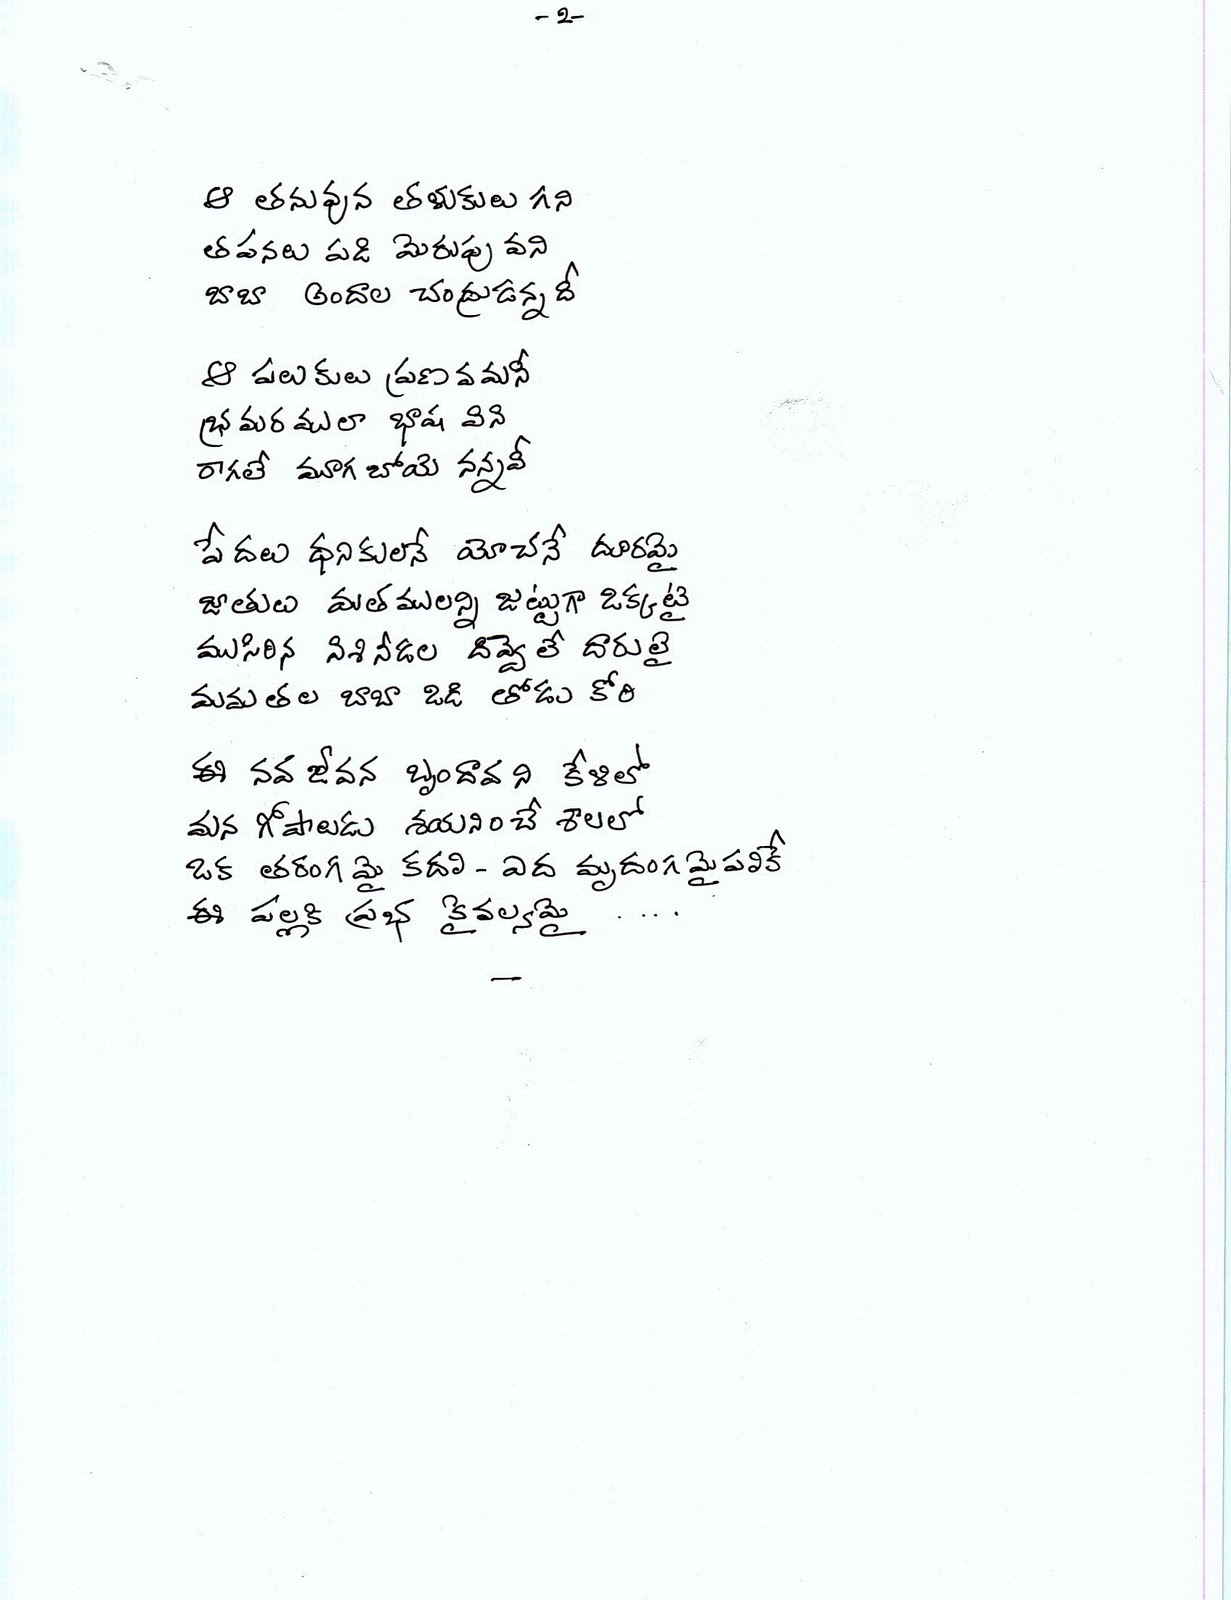 -2-
ఆ తనువున తళుకులు గని
తపనలు పడి మెరుపు వని
బాబా అందాల చంద్రుడన్నదీ
ఆ పలుకులు ప్రణవమనీ
భ్రమరములా భాష విని
రాగలే మూగబోయె నన్నవీ
పేదలు ధనికులనే యోచనే దూరమై
జాతులు మతములన్ని జట్టుగా ఒక్కటై
ముసిరిన నిశినీడల దివ్వెలే దారులై
మమతల బాబా ఒడి తోడు కోరి
ఈ నవ జీవన బృందావని కేళిలో
మన గోపాలుడు శయనించే శాలలో
ఒక తరంగమై కదలి - ఎద మృదంగమై పలికే
ఈ పల్లకి ప్రభ కైవల్యమై ....